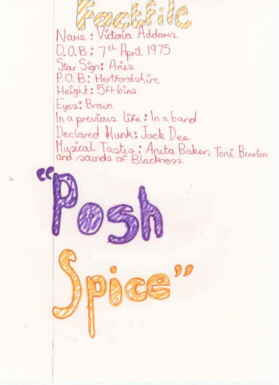 Factfile
Name: Victoria Addams
D.O.B: 7th April 1975
Star Sign: Aries
P.O.B: Hertfordshire
Height: 5ft 6ins
Eyes: Brown
In a previous life: In a band
Declared Hunk: Jack Dee
Musical Taste: Anita Baker, Toni Braxton
and sounds of Blackness
"Posh
Spice"